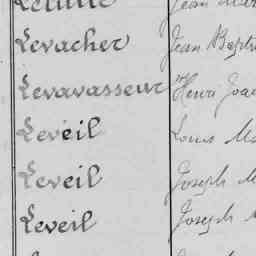 Levacher Jean Bapti
Levavasseur Henri Joa
Leveil Louis Ma
Leveil Joseph M
Leveil Joseph